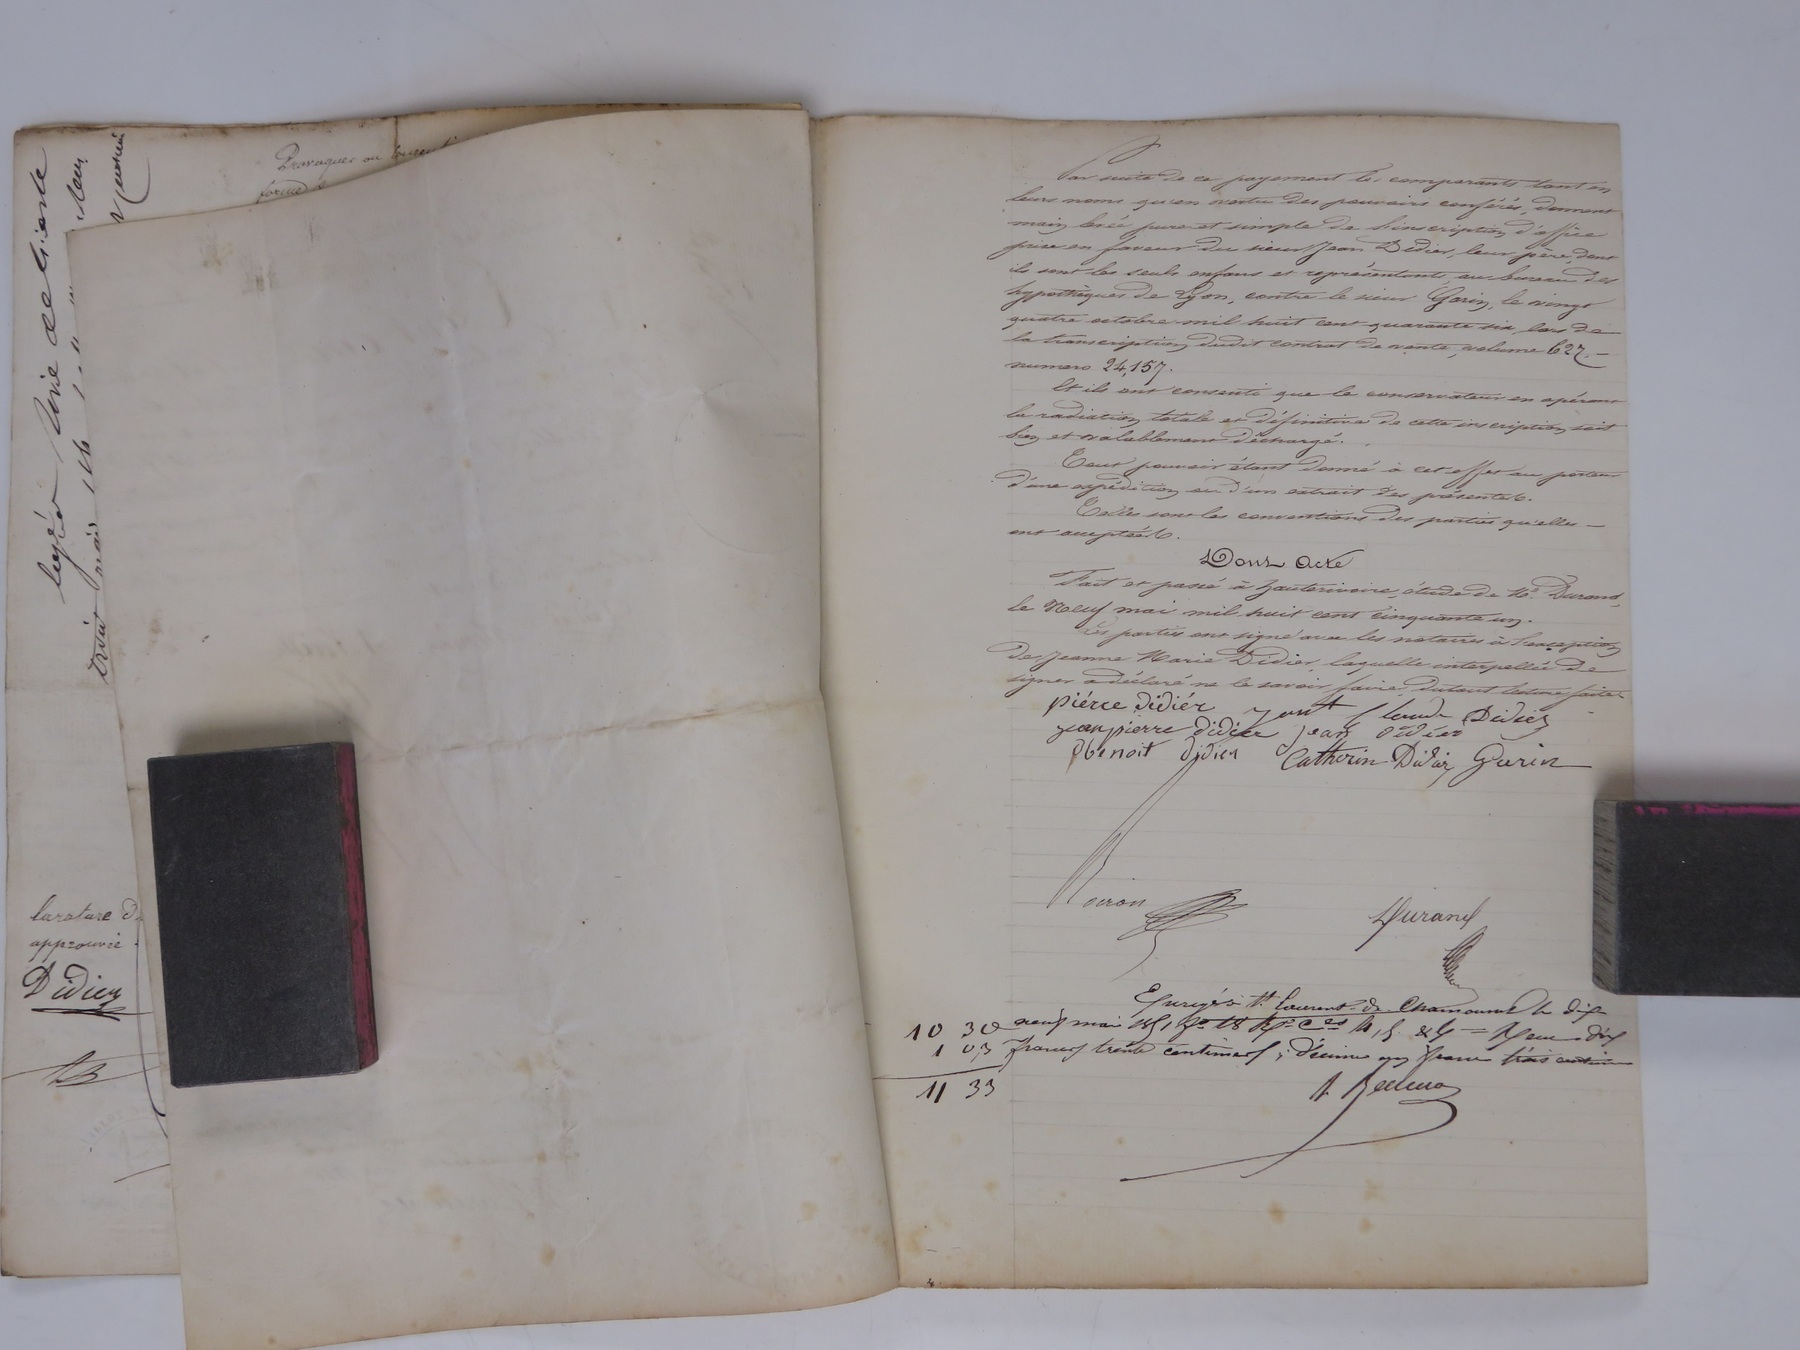 Provoquer ou
forme
larature d
approuvée
Didier
Par suite de ce payement les comparants tant en
leurs noms qu'en vertu des pouvoirs conférés, donnent
main levée pure et simple de l'inscription d'office
prise en faveur du sieur Jean Didier, leur père, dont
ils sont les seuls enfans et représentants, au bureau des
hypothèques de Lyon, contre le sieur Garin, le vingt
quatre octobre mil huit cent quarante six, lors de
la transcription dudit contrat de vente, volume 627, —
numero 24,157.
Et ils ont consenti que le conservateur en opérant
la radiation totale et définitive de cette inscription soit
bien et valablement déchargé.
Tout pouvoir étant donné à cet effet au porteur
d'une expédition ou d'un extrait des présentes.
Telles sont les conventions des parties qu'elles —
ont acceptées.
Dont acte
Fait et passé à hauterivoire, étude de Me. Durand,
le Neuf mai mil huit cent cinquante un.
Les parties ont signé avec les notaires à l'exception
de Jeanne Marie Didier, laquelle interpellée de
signer a déclaré ne le savoir faire, dutout lecture faite.
piérre didiér Claude Didier
jean pierre didier jean didier
benoit didier Catherin Didier Garin
Durand
Enregé à St Laurent de Chamousset le dix
10 30 neuf mai 1851, fo 18 Ro Ces 4, 5 & 6 = Reçu dix
1 03 francs trente centimes, décime un franc trois centimes
11 33